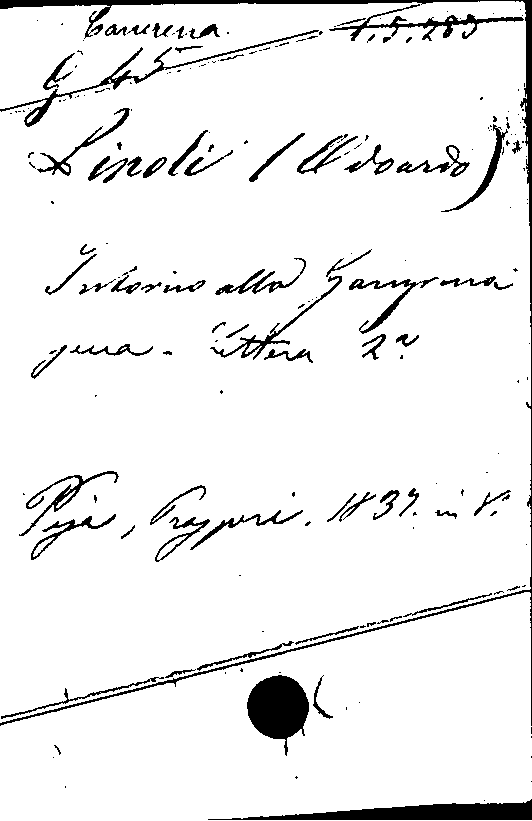 1.5.283
G 45
Linoli (Odoardo)
Intorno alla Gangrena
Lettera 2ª
Pisa, Prosperi. 1837. in 8.